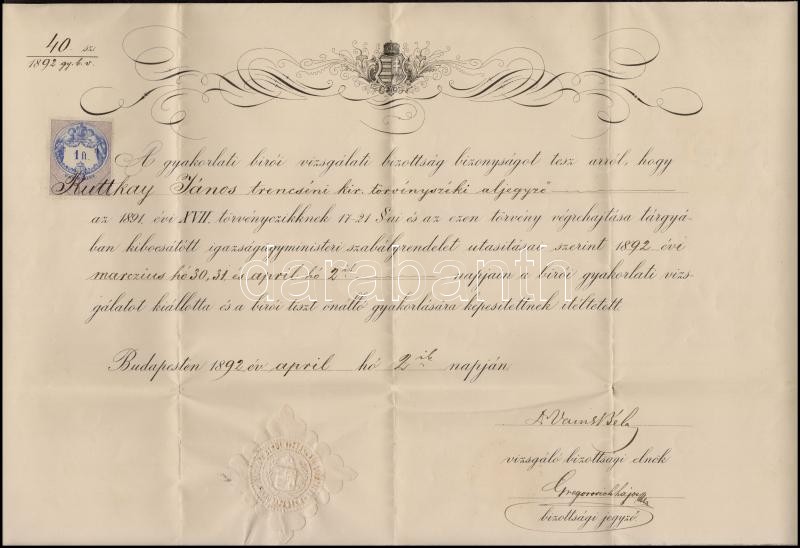 40. sz.
1892 gy. b. v.
1 ft.
A gyakorlati birói vizsgálati bizottság bizonyságot tesz arról, hogy
Ruttkay János trencséni kir. törvényszéki aljegyző
az 1891. évi XVII. törvényczikknek 17-21 §ai és az ezen törvény végrehajtása tárgyá-
ban kibocsátott igazságügyministeri szabályrendelet utasításai szerint 1892 évi
marczius hó 30, 31 és april hó 2 ik napjain a birói gyakorlati vizs-
gálatot kiállotta és a birói tiszt önálló gyakorlására képesitettnek itéltetett.
Budapesten 1892 év april hó 2 ik napján
darabanth
Béla
vizsgáló bizottsági elnök
Gregorovich Lajos
bizottsági jegyző.